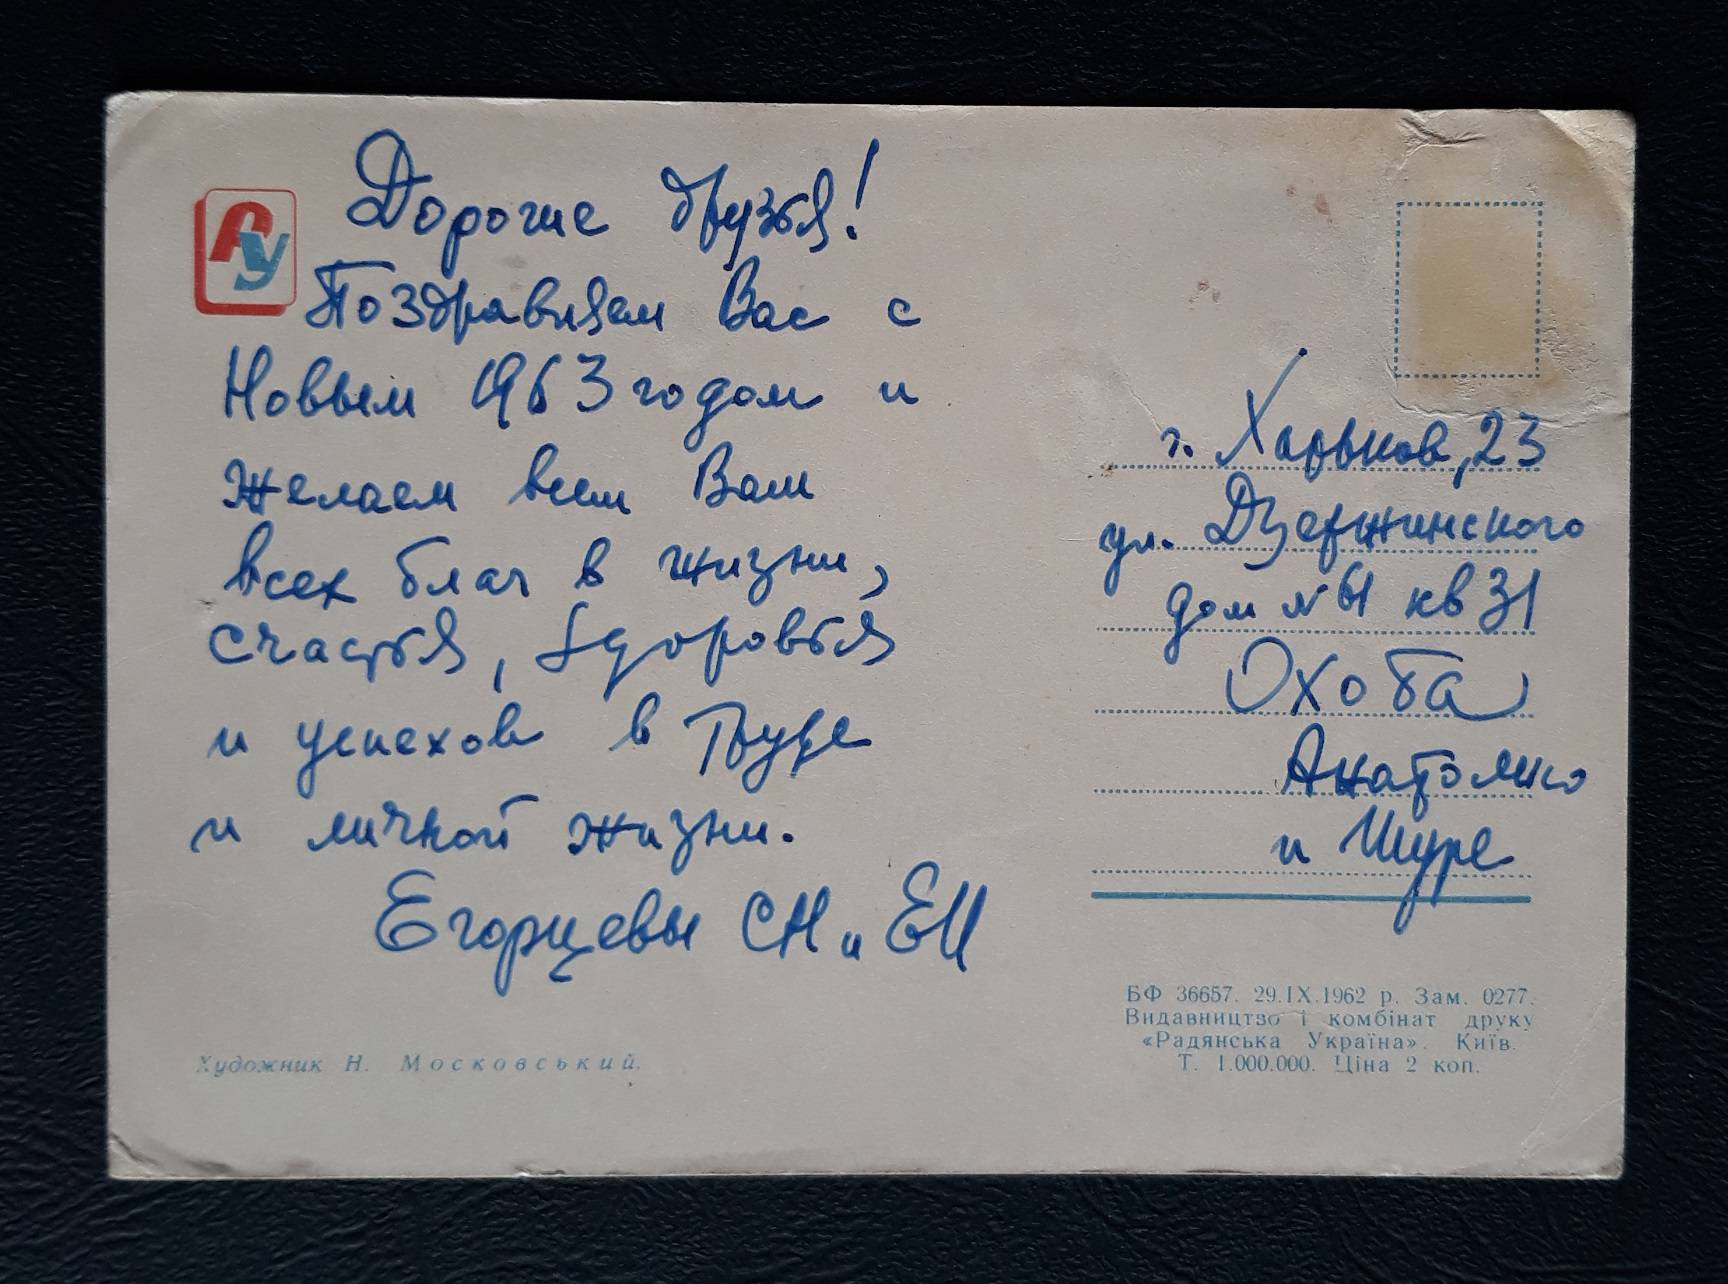 РУ
Дорогие друзья!
Поздравляем Вас с
Новым 1963 годом и
желаем всем Вам
всех благ в жизни,
счастья, здоровья
и успехов в труде
и личной жизни.
Егорцевы СН и ЕИ
г. Харьков, 23
ул. Дзержинского
дом № 61 кв 31
Охоба
Анатолию
и Шуре
БФ 36657. 29.IX.1962 р. Зам. 0277.
Видавництво і комбінат друку
«Радянська Україна». Київ.
Т. 1.000.000. Ціна 2 коп.
Художник Н. Московський.